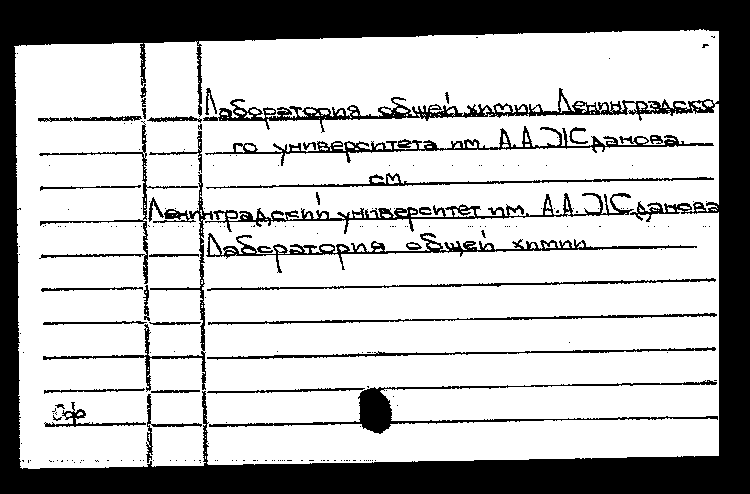 Лаборатория общей химии Ленинградско-
го университета им. А.А. Жданова.
см.
Ленинградский университет им. А.А. Жданова
Лаборатория общей химии.
Оф